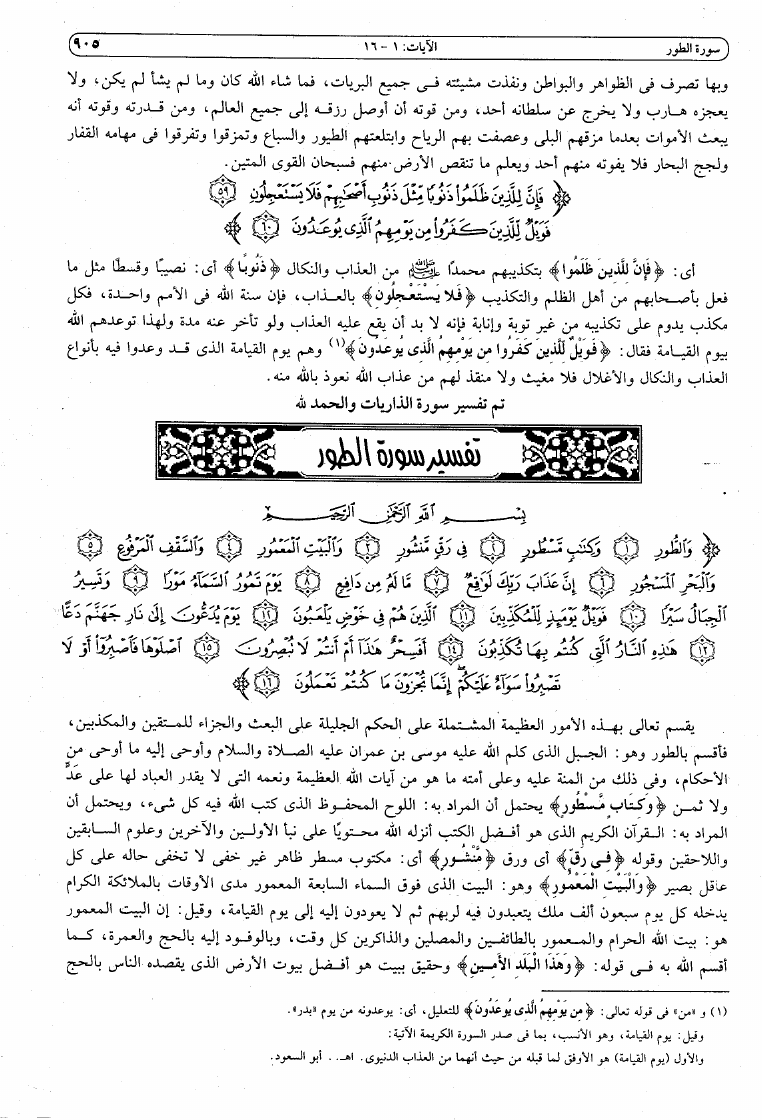 سورة الطور الآيات: ١ - ١٦ ٩٠٥
وبها تصرف فى الظواهر والبواطن ونفذت مشيئته فـى جميع البريات، فما شاء الله كان وما لم يشأ لم يكن، ولا
يعجزه هـارب ولا يخرج عن سلطانه أحد، ومن قوته أن أوصل رزقـه إلى جميع العالم، ومن قـدرته وقوته أنه
يبعث الأموات بعدما مزقهم البلى وعصفت بهم الرياح وابتلعتهم الطيور والسباع وتمزقوا وتفرقوا فى مهامه القفار
ولجج البحار فلا يفوته منهم أحد ويعلم ما تنقص الأرض منهم فسبحان القوى المتين.
﴿ فَإِنَّ لِلَّذِينَ ظَلَمُوا۟ ذَنُوبًا مِّثْلَ ذَنُوبِ أَصْحَٰبِهِمْ فَلَا يَسْتَعْجِلُونِ ٥٩
فَوَيْلٌ لِّلَّذِينَ كَفَرُوا۟ مِن يَوْمِهِمُ ٱلَّذِى يُوعَدُونَ ٦٠ ﴾
أى: ﴿فَإِنَّ لِلَّذِينَ ظَلَمُوا﴾ بتكذيبهم محمدًا ﷺ من العذاب والنكال ﴿ذَنُوبًا﴾ أى: نصيبًا وقسطًا مثل ما
فعل بأصـحابهم من أهل الظلم والتكذيب ﴿فَلا يَسْتَعْجِلُونِ﴾ بالعـذاب، فإن سنة الله فى الأمم واحـدة، فكل
مكذب يدوم على تكذيبه من غير توبة وإنابة فإنه لا بد أن يقع عليه العذاب ولو تأخر عنه مدة ولهذا توعدهم الله
بيوم القيـامة فقال: ﴿فَوَيْلٌ لِّلَّذِينَ كَفَرُوا مِن يَوْمِهِمُ الَّذِي يُوعَدُونَ﴾(١) وهم يوم القيامة الذى قـد وعدوا فيه بأنواع
العذاب والنكال والأغلال فلا مغيث ولا منقذ لهم من عذاب الله نعوذ بالله منه.
تم تفسير سورة الذاريات والحمد لله
تفسير سورة الطور
بِسْمِ ٱللَّهِ ٱلرَّحْمَٰنِ ٱلرَّحِيمِ
﴿ وَٱلطُّورِ ١ وَكِتَٰبٍ مَّسْطُورٍ ٢ فِى رَقٍّ مَّنشُورٍ ٣ وَٱلْبَيْتِ ٱلْمَعْمُورِ ٤ وَٱلسَّقْفِ ٱلْمَرْفُوعِ ٥
وَٱلْبَحْرِ ٱلْمَسْجُورِ ٦ إِنَّ عَذَابَ رَبِّكَ لَوَٰقِعٌ ٧ مَّا لَهُۥ مِن دَافِعٍ ٨ يَوْمَ تَمُورُ ٱلسَّمَآءُ مَوْرًا ٩ وَتَسِيرُ
ٱلْجِبَالُ سَيْرًا ١٠ فَوَيْلٌ يَوْمَئِذٍ لِّلْمُكَذِّبِينَ ١١ ٱلَّذِينَ هُمْ فِى خَوْضٍ يَلْعَبُونَ ١٢ يَوْمَ يُدَعُّونَ إِلَىٰ نَارِ جَهَنَّمَ دَعًّا
١٣ هَٰذِهِ ٱلنَّارُ ٱلَّتِى كُنتُم بِهَا تُكَذِّبُونَ ١٤ أَفَسِحْرٌ هَٰذَآ أَمْ أَنتُمْ لَا تُبْصِرُونَ ١٥ ٱصْلَوْهَا فَٱصْبِرُوٓا۟ أَوْ لَا
تَصْبِرُوا۟ سَوَآءٌ عَلَيْكُمْ إِنَّمَا تُجْزَوْنَ مَا كُنتُمْ تَعْمَلُونَ ١٦ ﴾
يقسم تعالى بهـذه الأمور العظيمة المشـتملة على الحكم الجليلة على البعث والجزاء للمـتقين والمكذبين،
فأقسم بالطور وهو: الجـبل الذى كلم الله عليه موسى بن عمران عليه الصـلاة والسلام وأوحى إليه ما أوحى من
الأحكام، وفى ذلك من المنة عليه وعلى أمته ما هو من آيات الله العظيمة ونعمه التى لا يقدر العباد لها على عَدٍّ
ولا ثمـن ﴿وَكِتَابٍ مَّسْطُورٍ﴾ يحتمل أن المراد به: اللوح المحفـوظ الذى كتب الله فيه كل شىء، ويحتمل أن
المراد به: الـقرآن الكريم الذى هو أفـضل الكتب أنزله الله محـتويًا على نبأ الأولـين والآخرين وعلوم السـابقين
واللاحقين وقوله ﴿فِـي رَقٍّ﴾ أى ورق ﴿مَّنْشُـورٍ﴾ أى: مكتوب مسطر ظاهر غير خفى لا تخفى حاله على كل
عاقل بصير ﴿وَالْبَيْتِ الْمَعْمُورِ﴾ وهو: البيت الذى فوق السماء السابعة المعمور مدى الأوقات بالملائكة الكرام
يدخله كل يوم سبعون ألف ملك يتعبدون فيه لربهم ثم لا يعودون إليه إلى يوم القيامة، وقيل: إن البيت المعمور
هو: بيت الله الحرام والمـعمور بالطائفـين والمصلين والذاكرين كل وقت، وبالوفـود إليه بالحج والعمرة، كـما
أقسم الله به فـى قوله: ﴿وَهَذَا الْبَلَدِ الأَمِـينِ﴾ وحقيق ببيت هو أفـضل بيوت الأرض الذى يقصده الناس بالحج
(١) و «من» فى قوله تعالى: ﴿مِن يَوْمِهِمُ الَّذِي يُوعَدُونَ﴾ للتعليل، أى: يوعدونه من يوم «بدر».
وقيل: يوم القيامة، وهو الأنسب، بما فى صدر السورة الكريمة الآتية:
والأول (يوم القيامة) هو الأوفق لما قبله من حيث أنهما من العذاب الدنيوى. اهـ. . أبو السعود.